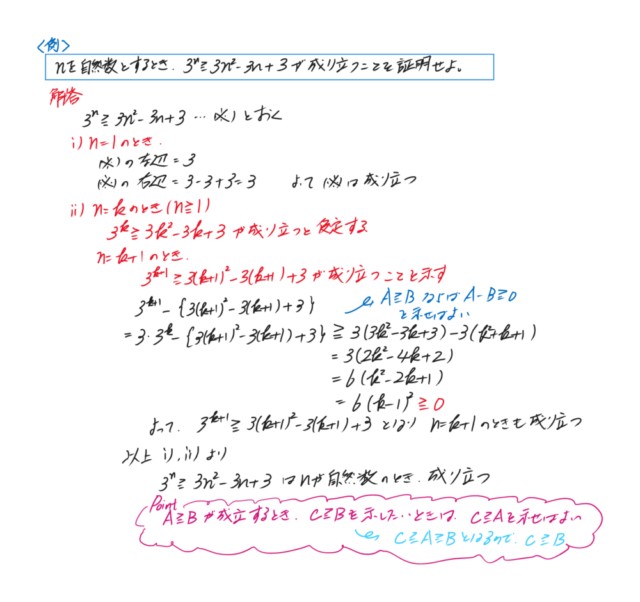 〈例〉
nを自然数とするとき、3ⁿ≧3n²-3n+3が成り立つことを証明せよ。
解答
3ⁿ≧3n²-3n+3 …(※)とおく
i) n=1のとき、
(※)の左辺=3
(※)の右辺=3-3+3=3 よって(※)は成り立つ
ii) n=kのとき(n≧1)
3ᵏ≧3k²-3k+3が成り立つと仮定する
n=k+1のとき、
3ᵏ⁺¹≧3(k+1)²-3(k+1)+3が成り立つことを示す
3ᵏ⁺¹-{3(k+1)²-3(k+1)+3}
A≧BならばA-B≧0
を示せばよい
=3・3ᵏ-{3(k+1)²-3(k+1)+3}≧3(3k²-3k+3)-3(k²+k+1)
=3(2k²-4k+2)
=6(k²-2k+1)
=6(k-1)²≧0
よって、3ᵏ⁺¹≧3(k+1)²-3(k+1)+3となり n=k+1のときも成り立つ
以上 i),ii)より
3ⁿ≧3n²-3n+3はnが自然数のとき、成り立つ
Point
A≧Bが成立するとき、C≧Bを示したいときは、C≧Aを示せばよい
C≧A≧Bとなるので、C≧B